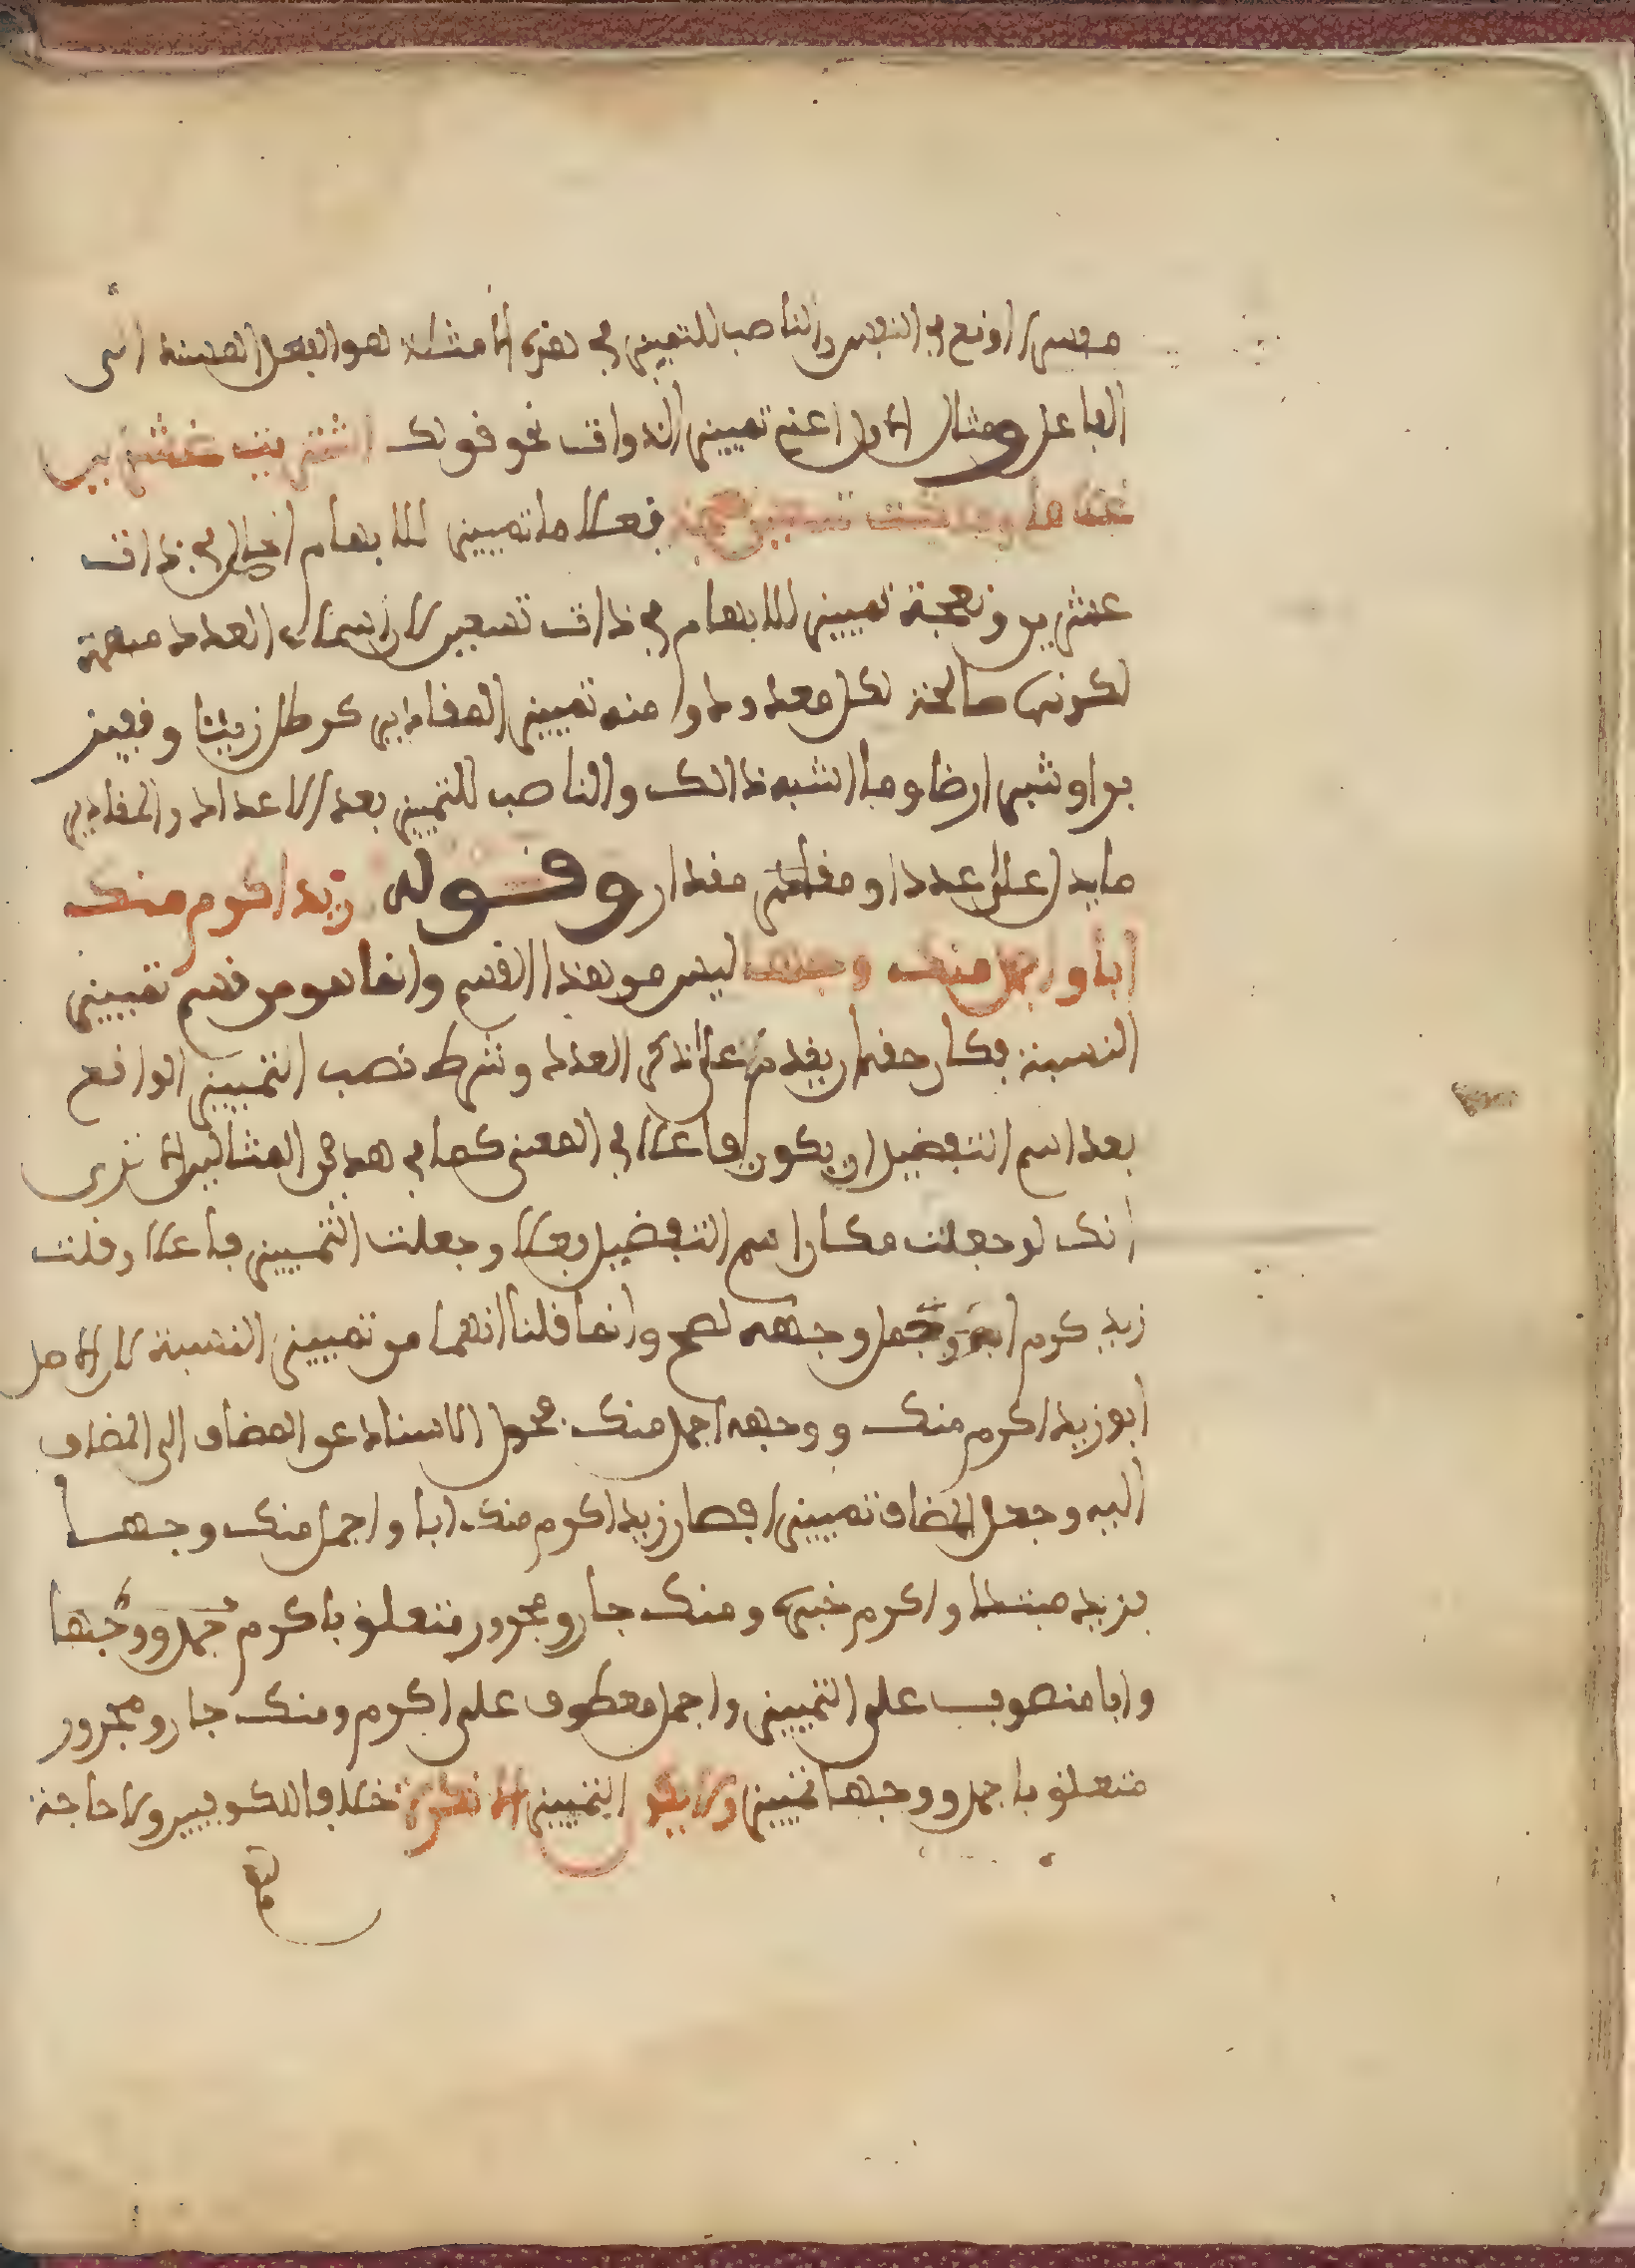 مفسرا اوقع في النفس والناصب للتمييز في هذه الامثلة هو الفعل المسند الى
الفاعل ومثال الاول اعني تمييز الذوات نحو قولك اشتريت عشرين
غلاما وملكت تسعين نعجة فغلاما تمييز للابهام الحاصل في ذات
عشرين ونعجة تمييز للابهام في ذات تسعين لان اسماء العدد مبهمة
لكونها صالحة لكل معدود ومنه تمييز المقادير كرطل زيتا وقفيز
برا وشبر ارضا وما اشبه ذالك والناصب للتمييز بعد الاعداد والمقادير
ما يدل على عدد او مقدار وقوله زيد اكرم منك
ابا واجمل منك وجها ليس من هذا القسم وانما هو من قسم تمييز
النسبة فكان حقه ان يقدم على ذكر العدد وشرط نصب التمييز الواقع
بعد اسم التفضيل ان يكون فاعلا في المعنى كما في هذين المثالين الا ترى
انك لو جعلت مكان اسم التفضيل فعلا وجعلت التمييز فاعلا وقلت
زيد كرم ابوه وجمل وجهه لصح وانما قلنا انهما من تمييز النسبة لان الاصل
ابو زيد اكرم منك ووجهه اجمل منك فحول الاسناد عن المضاف الى المضاف
اليه وجعل المضاف تمييزا فصار زيد اكرم منك ابا واجمل منك وجها
فزيد مبتدا واكرم خبره ومنك جار ومجرور متعلق باكرم
وابا منصوب على التمييز واجمل معطوف على اكرم ومنك جار ومجرور
متعلق باجمل ووجها تمييز ولا يكون التمييز الا نكرة خلافا للكوفيين ولا حاجة